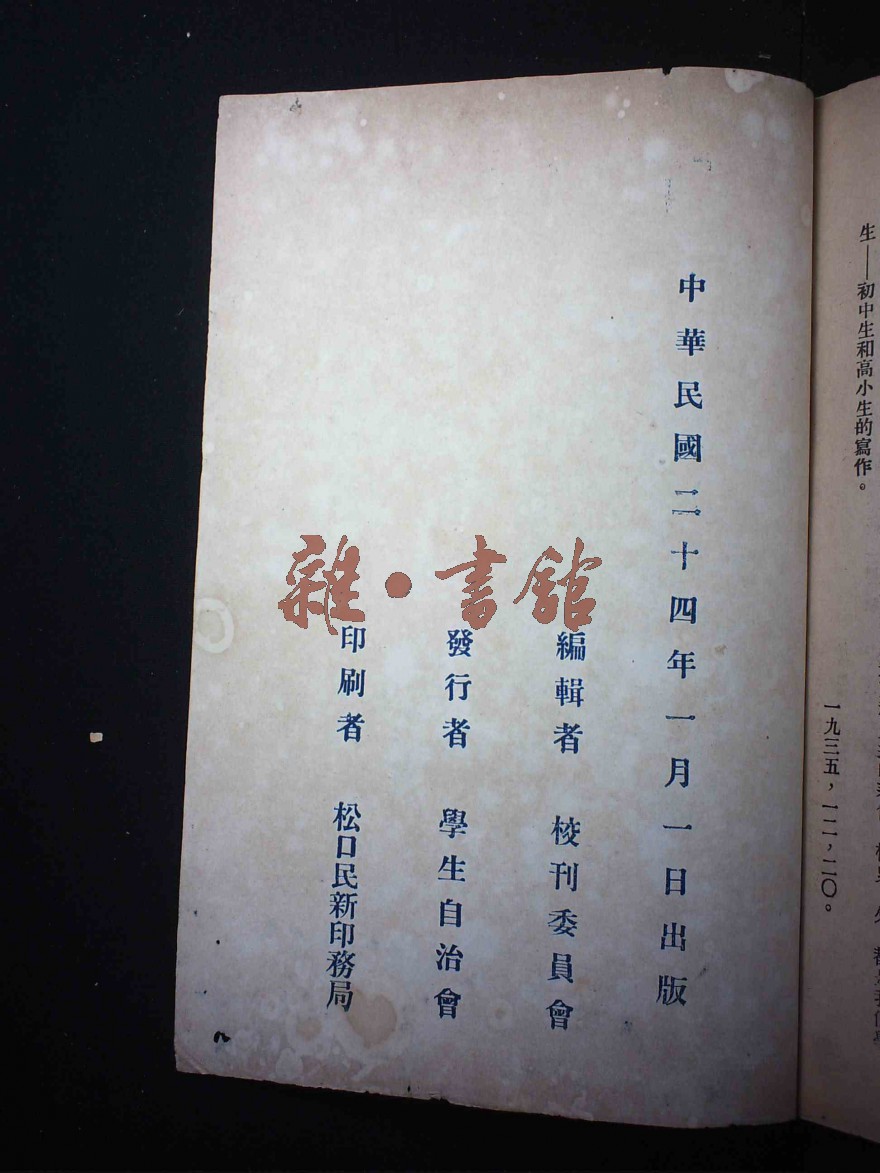 生——初中生和高小生的寫作。
一九三五，一二，二〇。
中華民國二十四年一月一日出版
編輯者 校刊委員會
發行者 學生自治會
印刷者 松口民新印務局
雜·書館